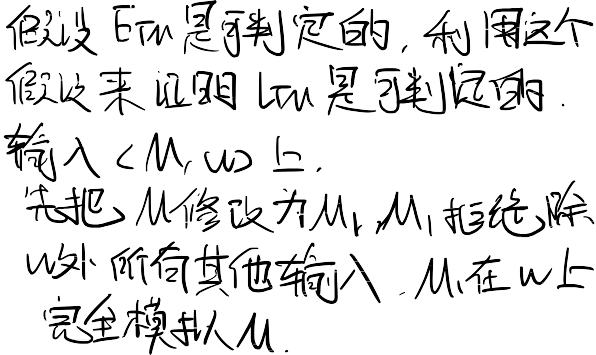 假设 ETM 是可判定的，利用这个
假设来证明 LTM 是可判定的.
输入 <M,w> 上.
先把 M 修改为 M₁, M₁ 拒绝除
w外所有其他输入. M₁在 w上
完全模拟M.